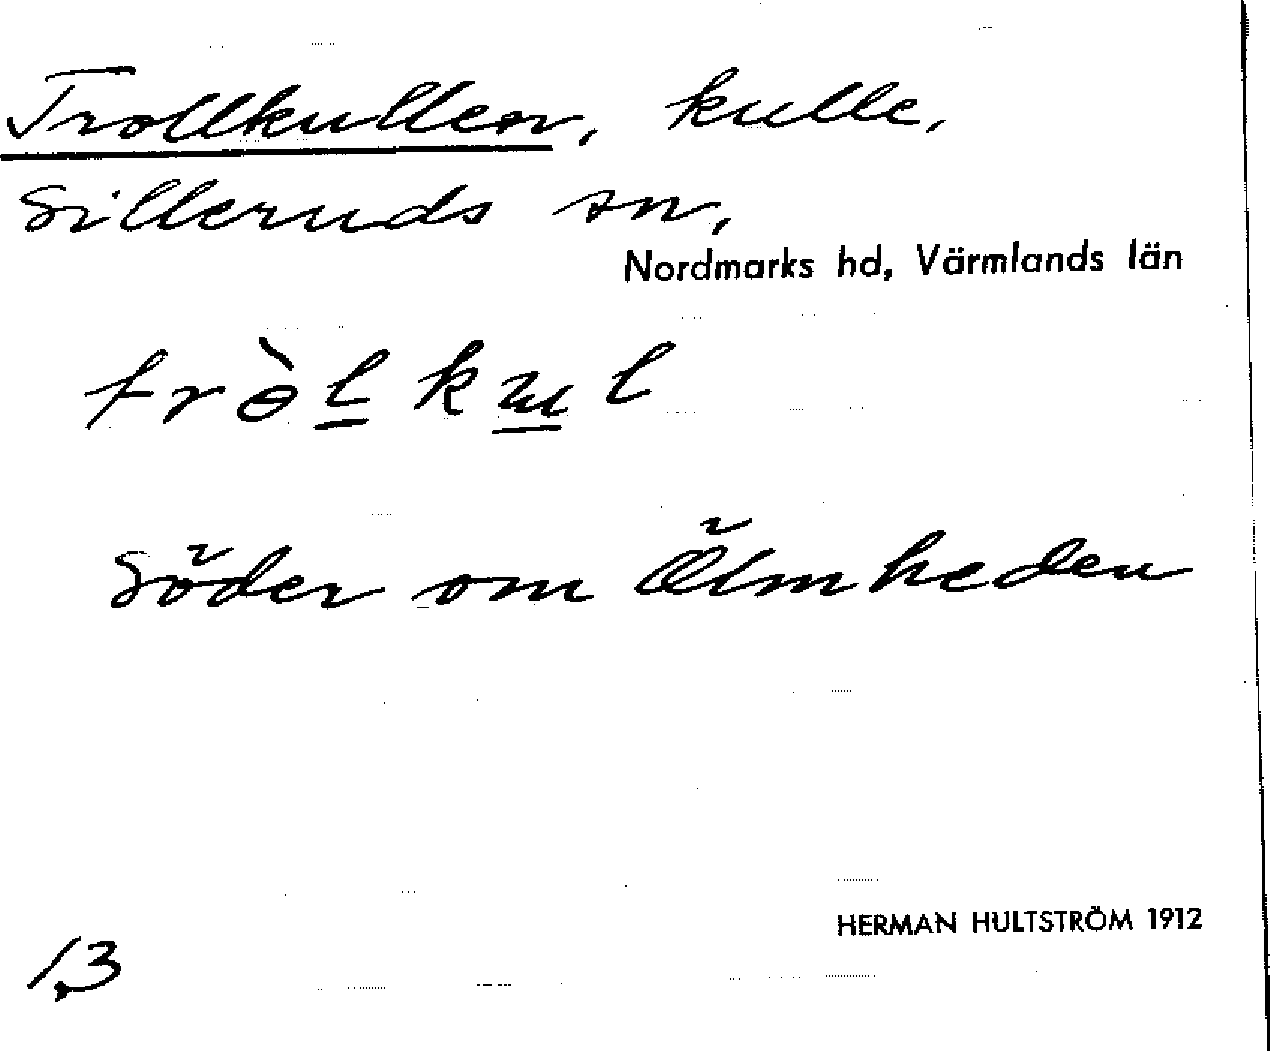 Trollkullen, kulle,
Silleruds sn,
Nordmarks hd, Värmlands län
trɵ̀l̲ ku̲l
Söder om Ölmheden
HERMAN HULTSTRÖM 1912
1,3